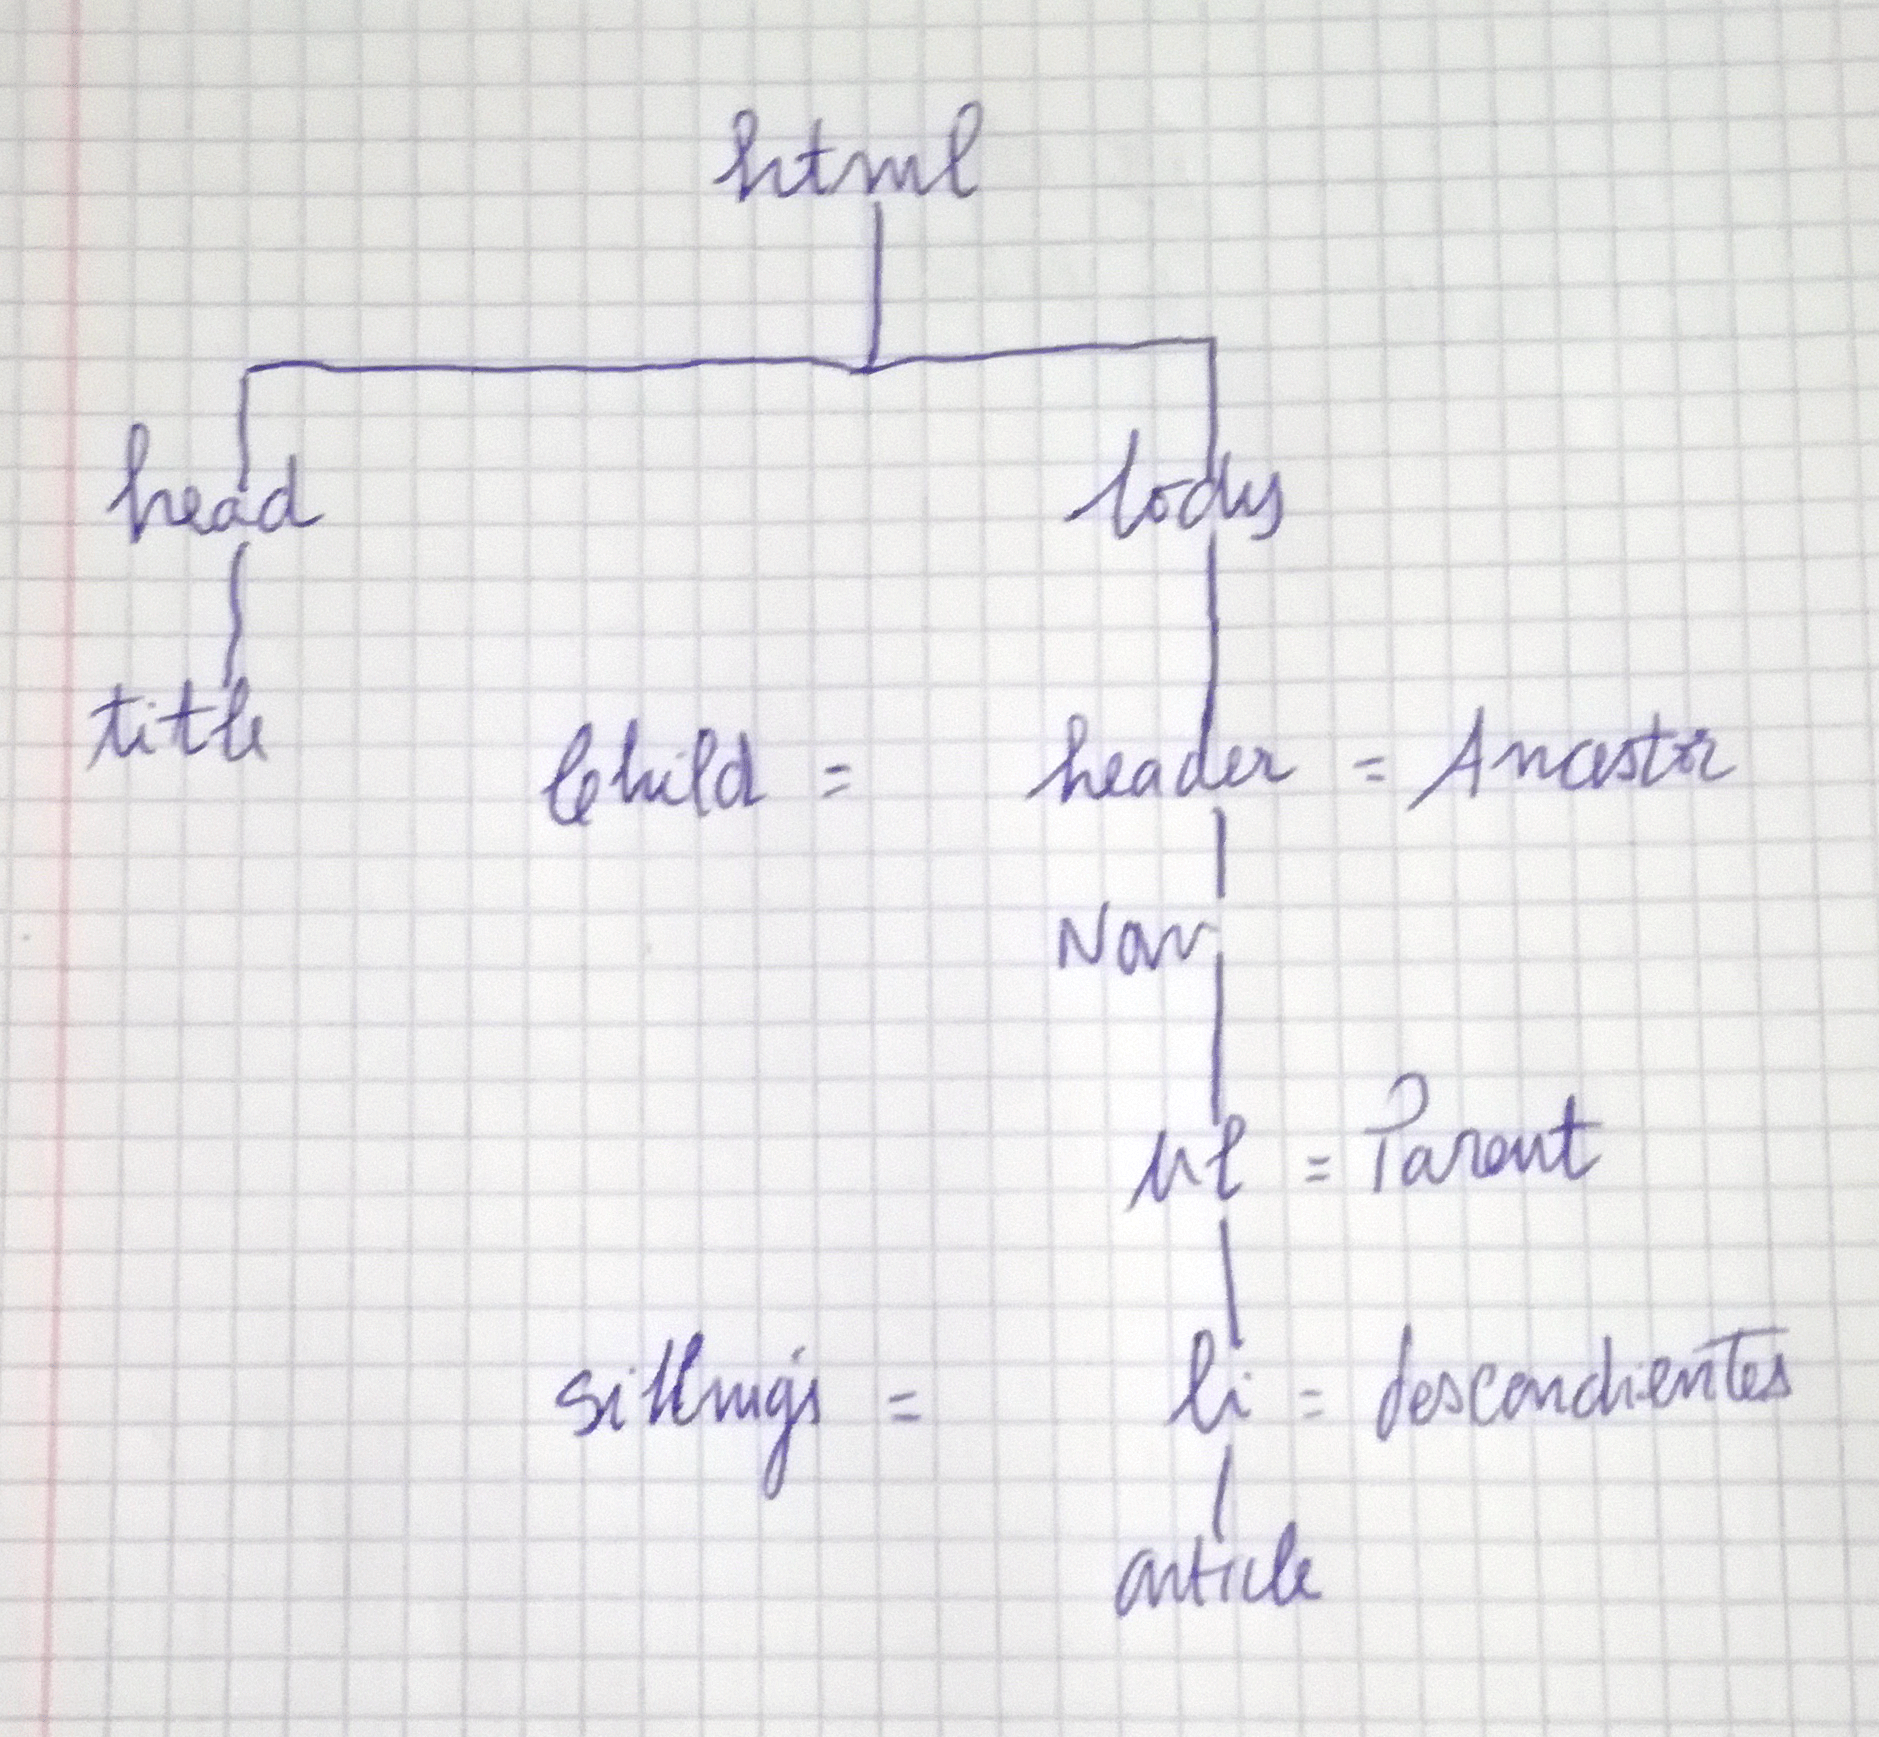 html
head body
title Child = header = Ancestor
Nav
ul = Parent
siblings = li = descendientes
article